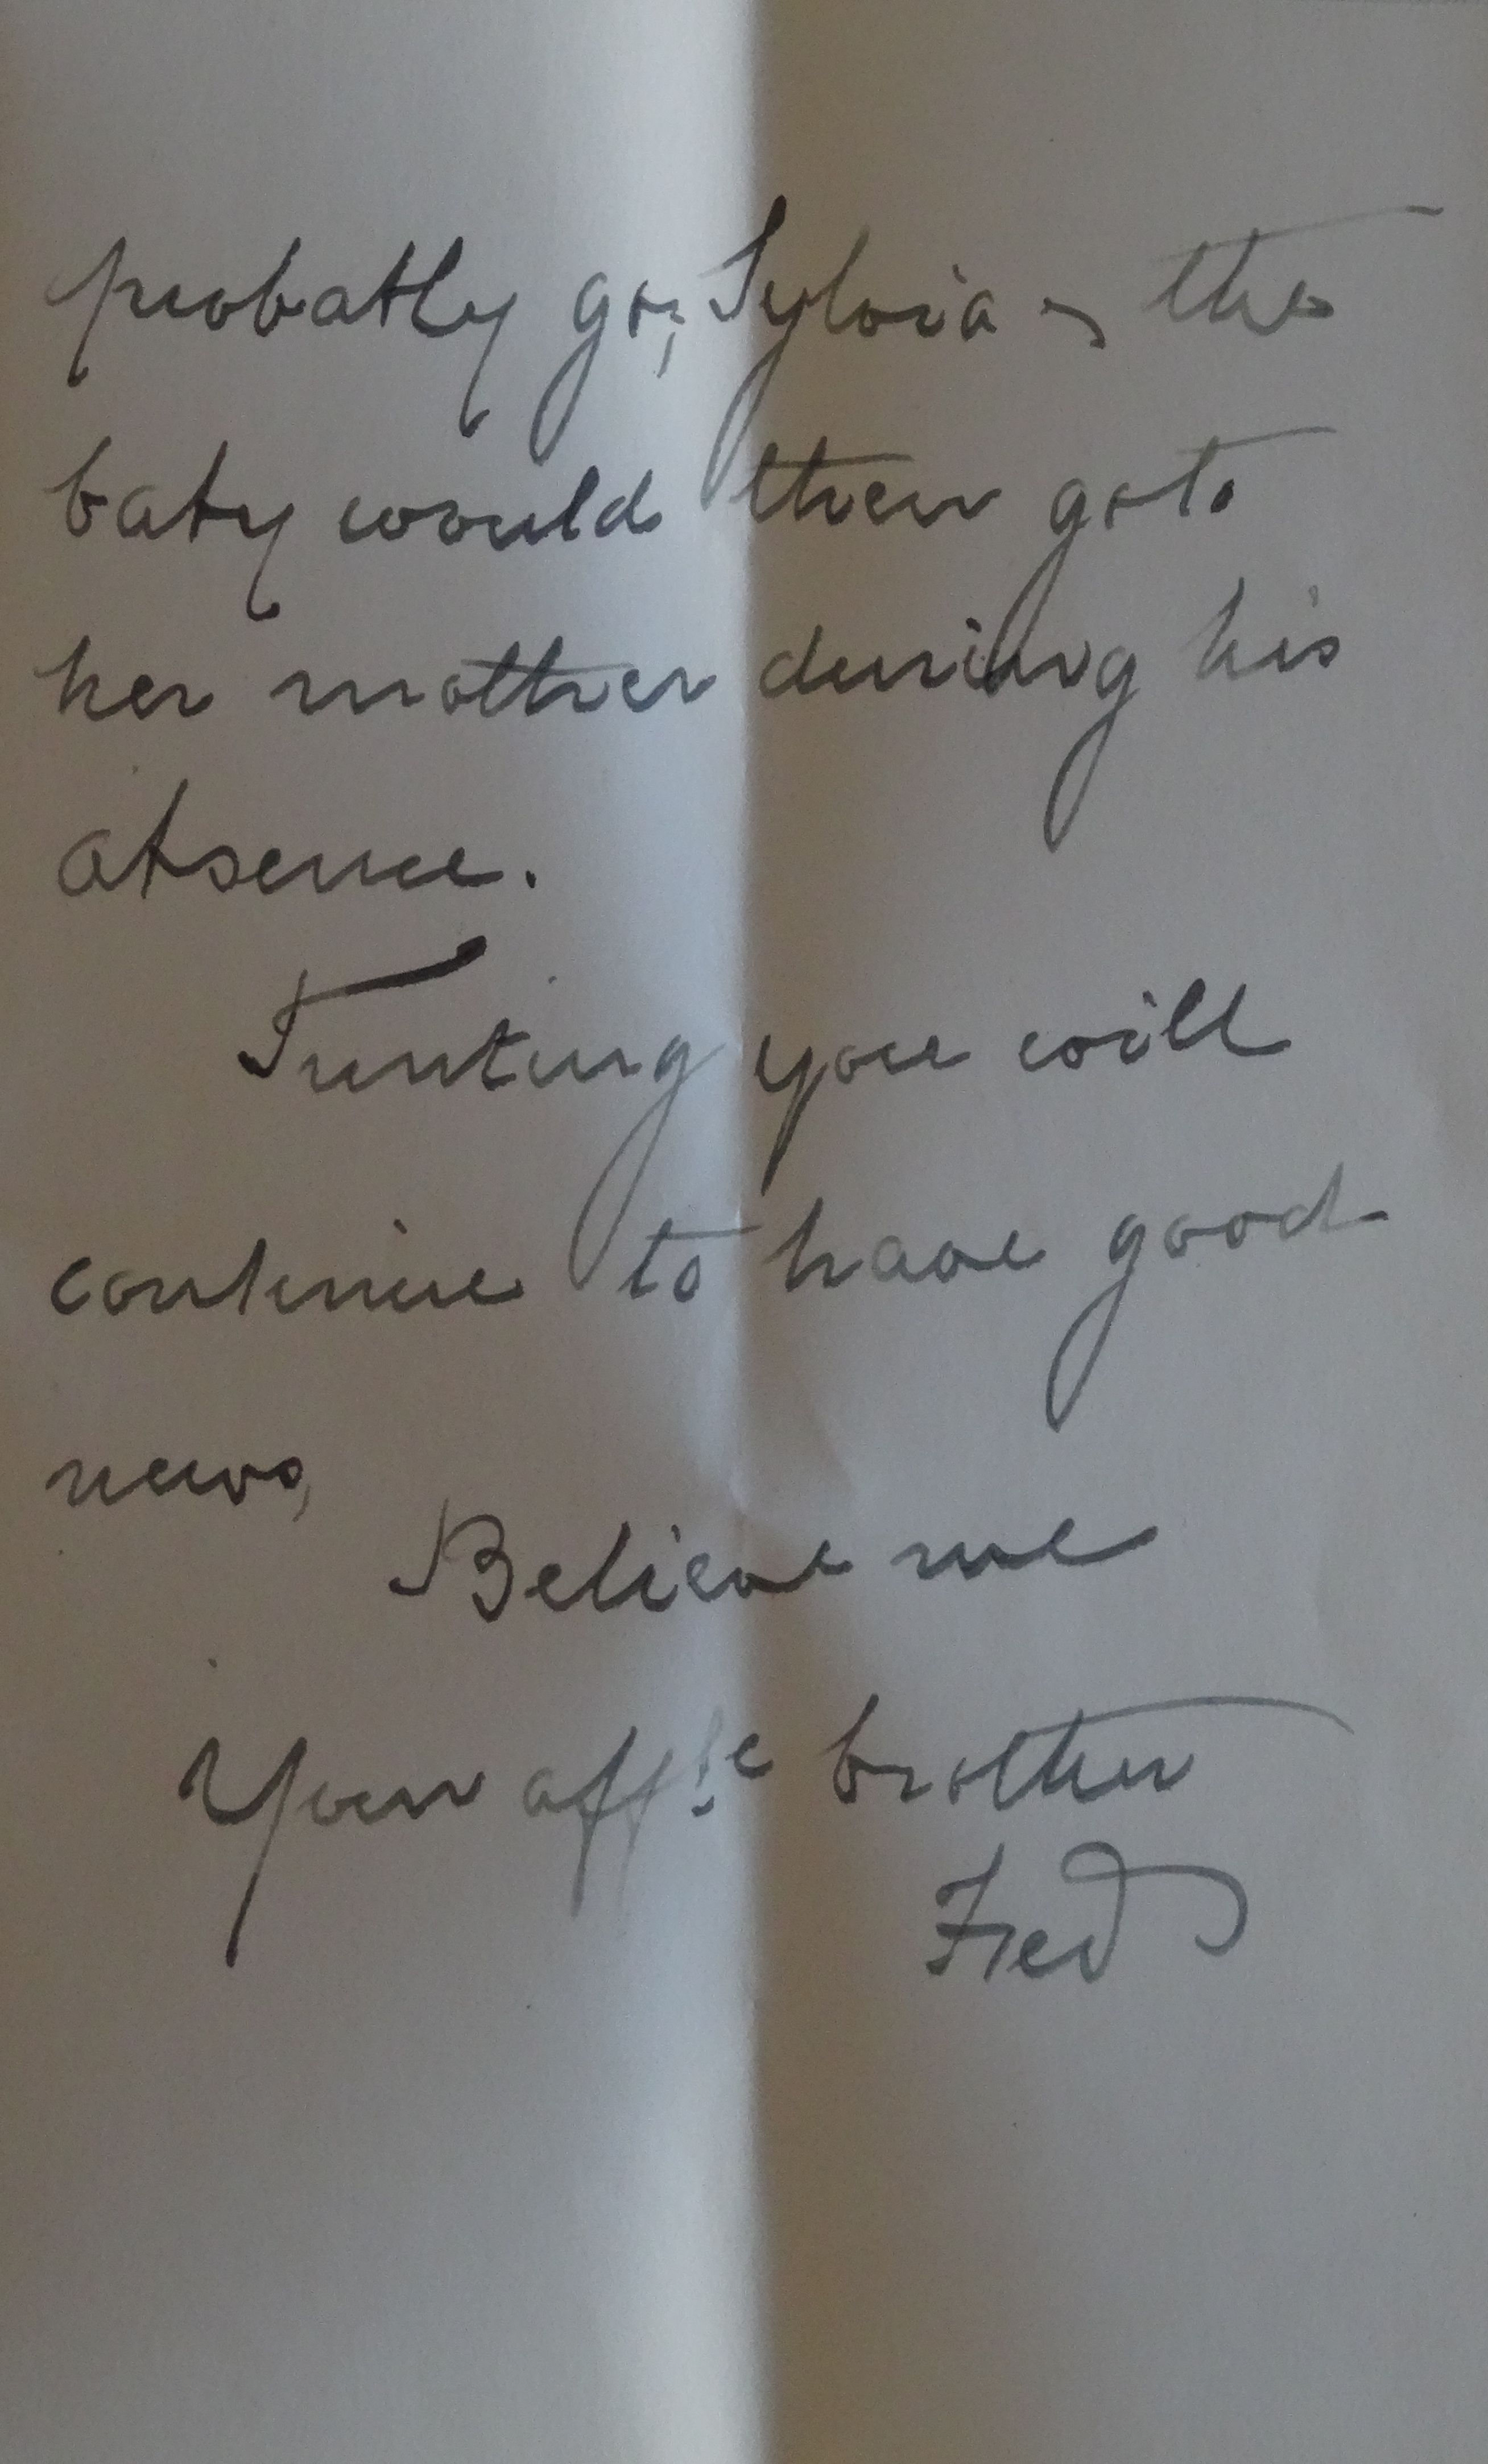 probably go; Sylvia & the
baby would then go to
her mother during his
absence.
Trusting you will
continue to have good
news,
Believe me
Your affte brother
Fred